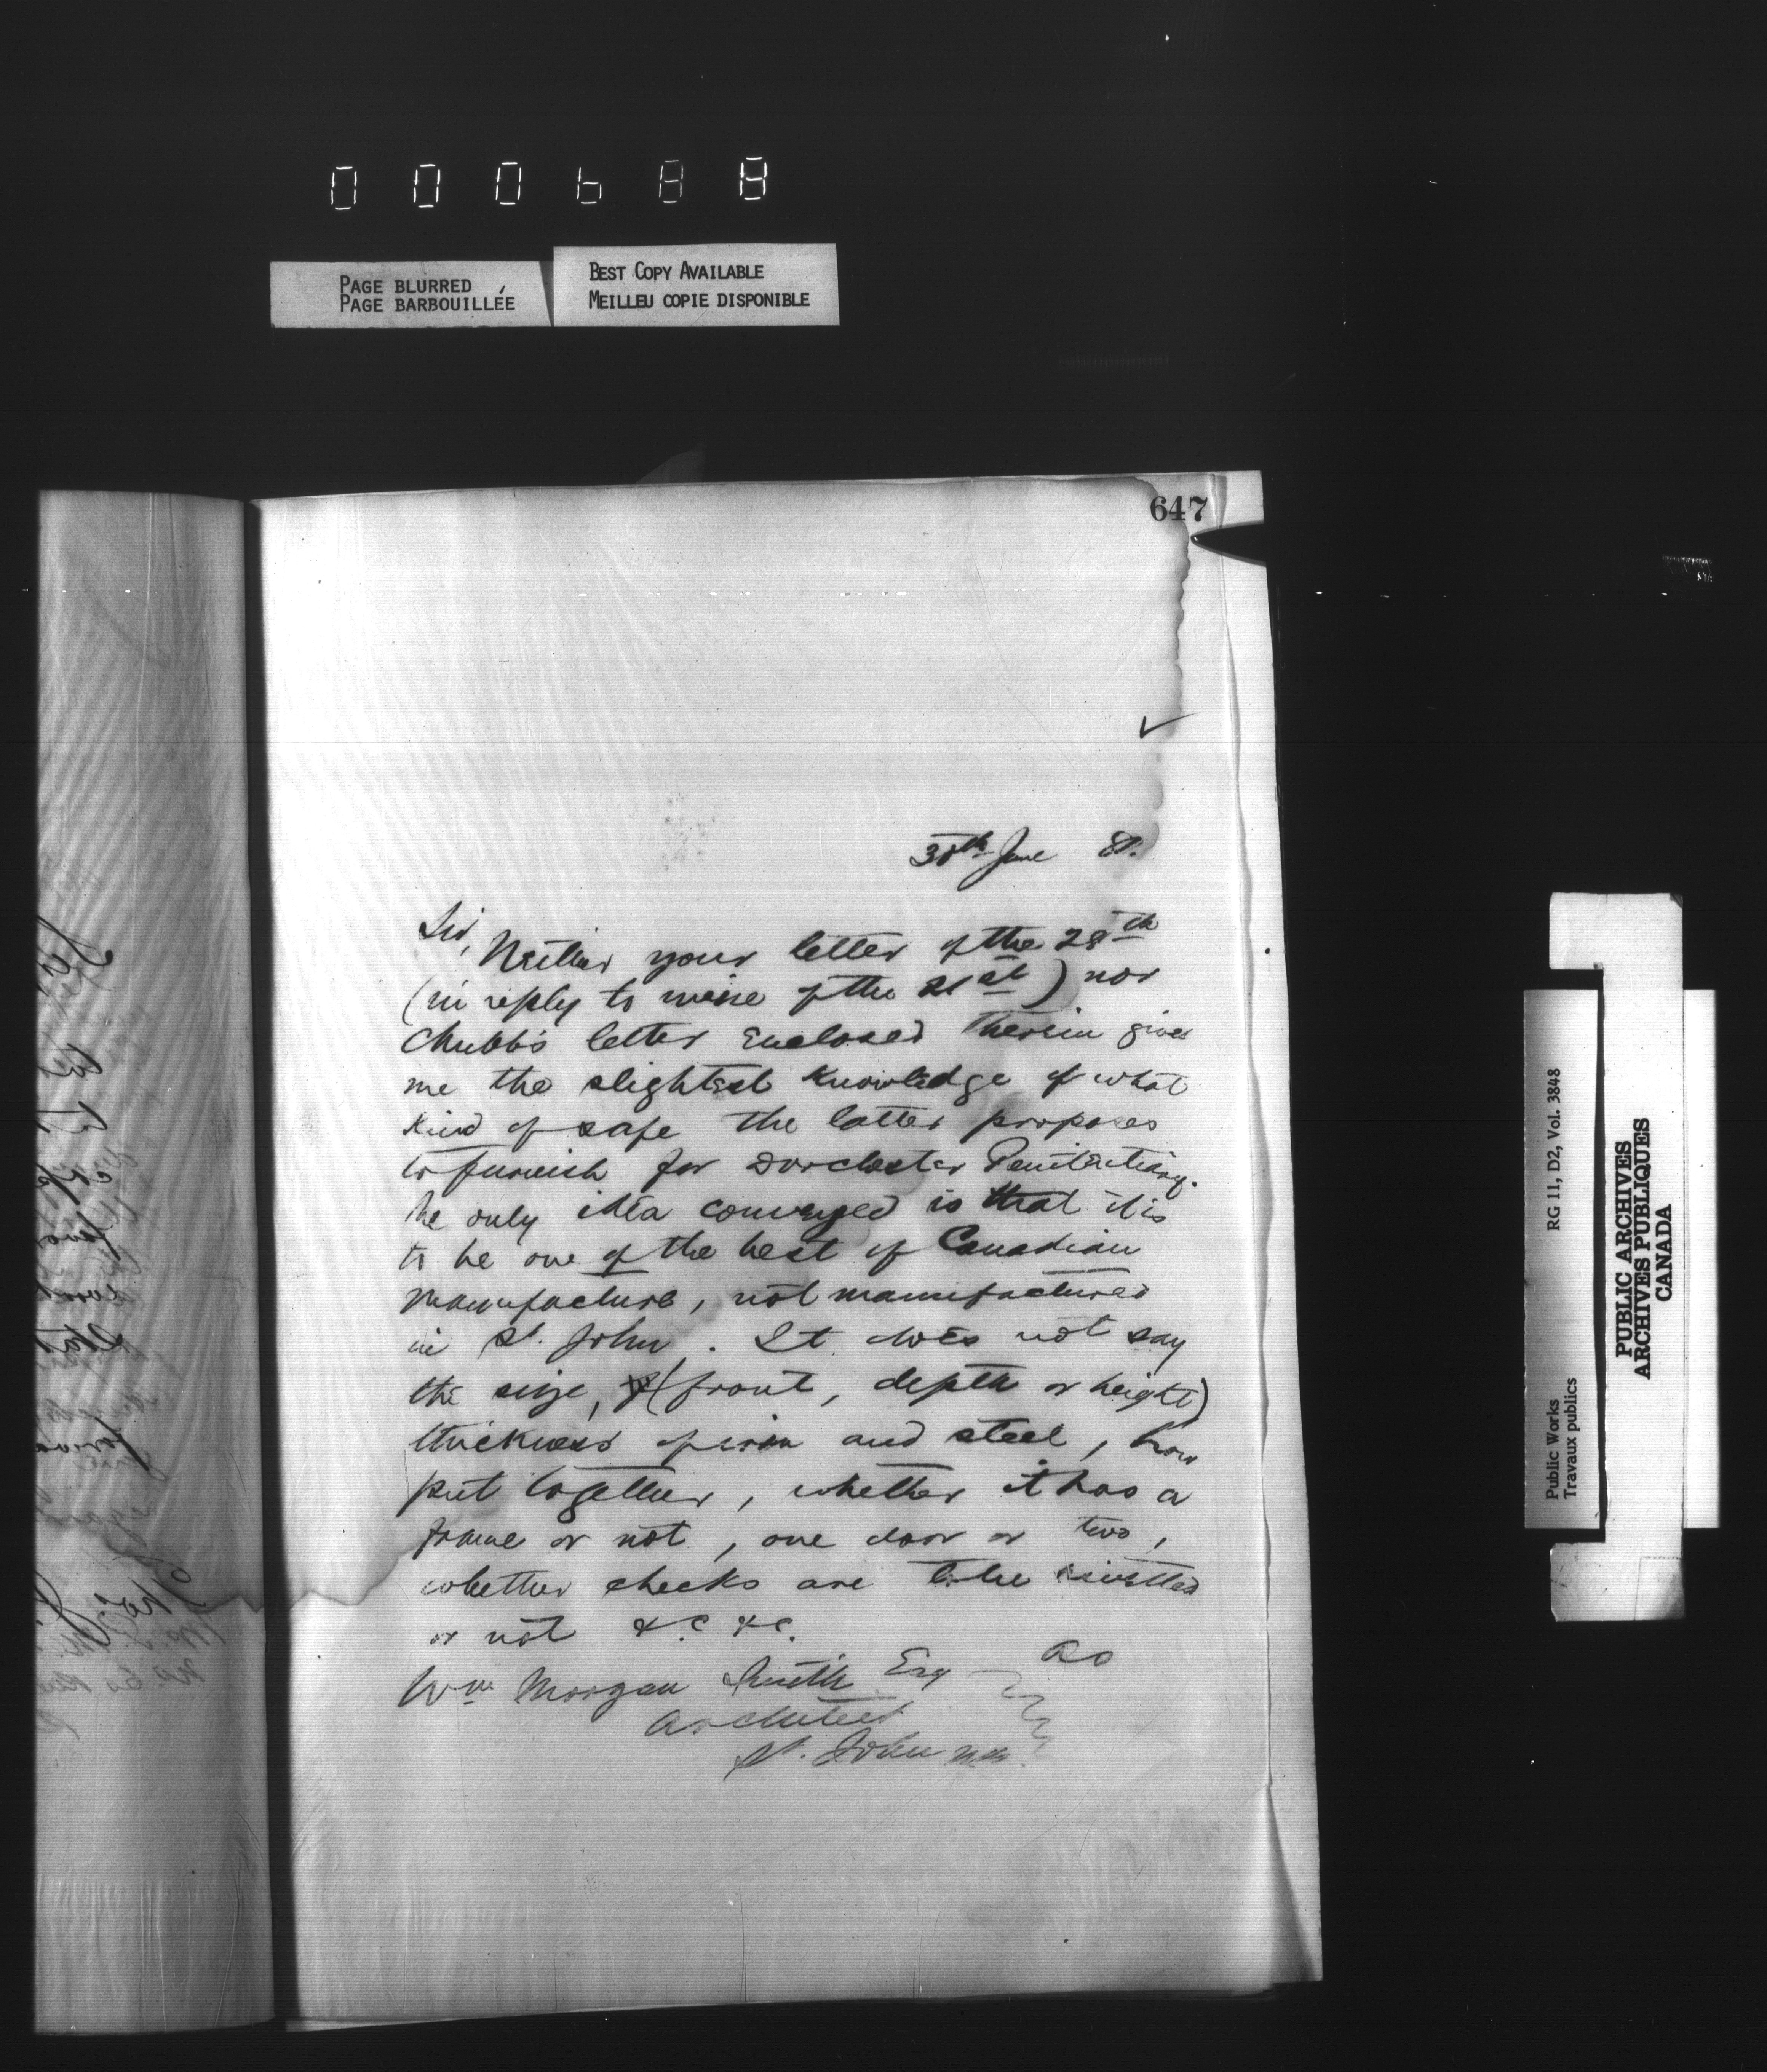 000688
PAGE BLURRED
PAGE BARBOUILLÉE
BEST COPY AVAILABLE
MEILLEU COPIE DISPONIBLE
647
30th June 81.
Sir,
Neither your letter of the 28th
(in reply to mine of the 21st) nor
Chubb's letter enclosed therein gives
me the slightest knowledge of what
kind of safe the latter proposes
to furnish for Dorchester Penitentiary.
he only idea conveyed is that it is
to be one of the best of Canadian
manufacture, not manufactured
in St. John. It does not say
the size, (front, depth or height)
thickness of iron and steel, how
put together, whether it has a
frame or not, one door or two,
whether checks are to be rivetted
or not &c &c.
as
Wm Morgan Smith Esq
Architect
St. John N.B.
Public Works
Travaux publics
RG 11, D2, Vol. 3848
PUBLIC ARCHIVES
ARCHIVES PUBLIQUES
CANADA